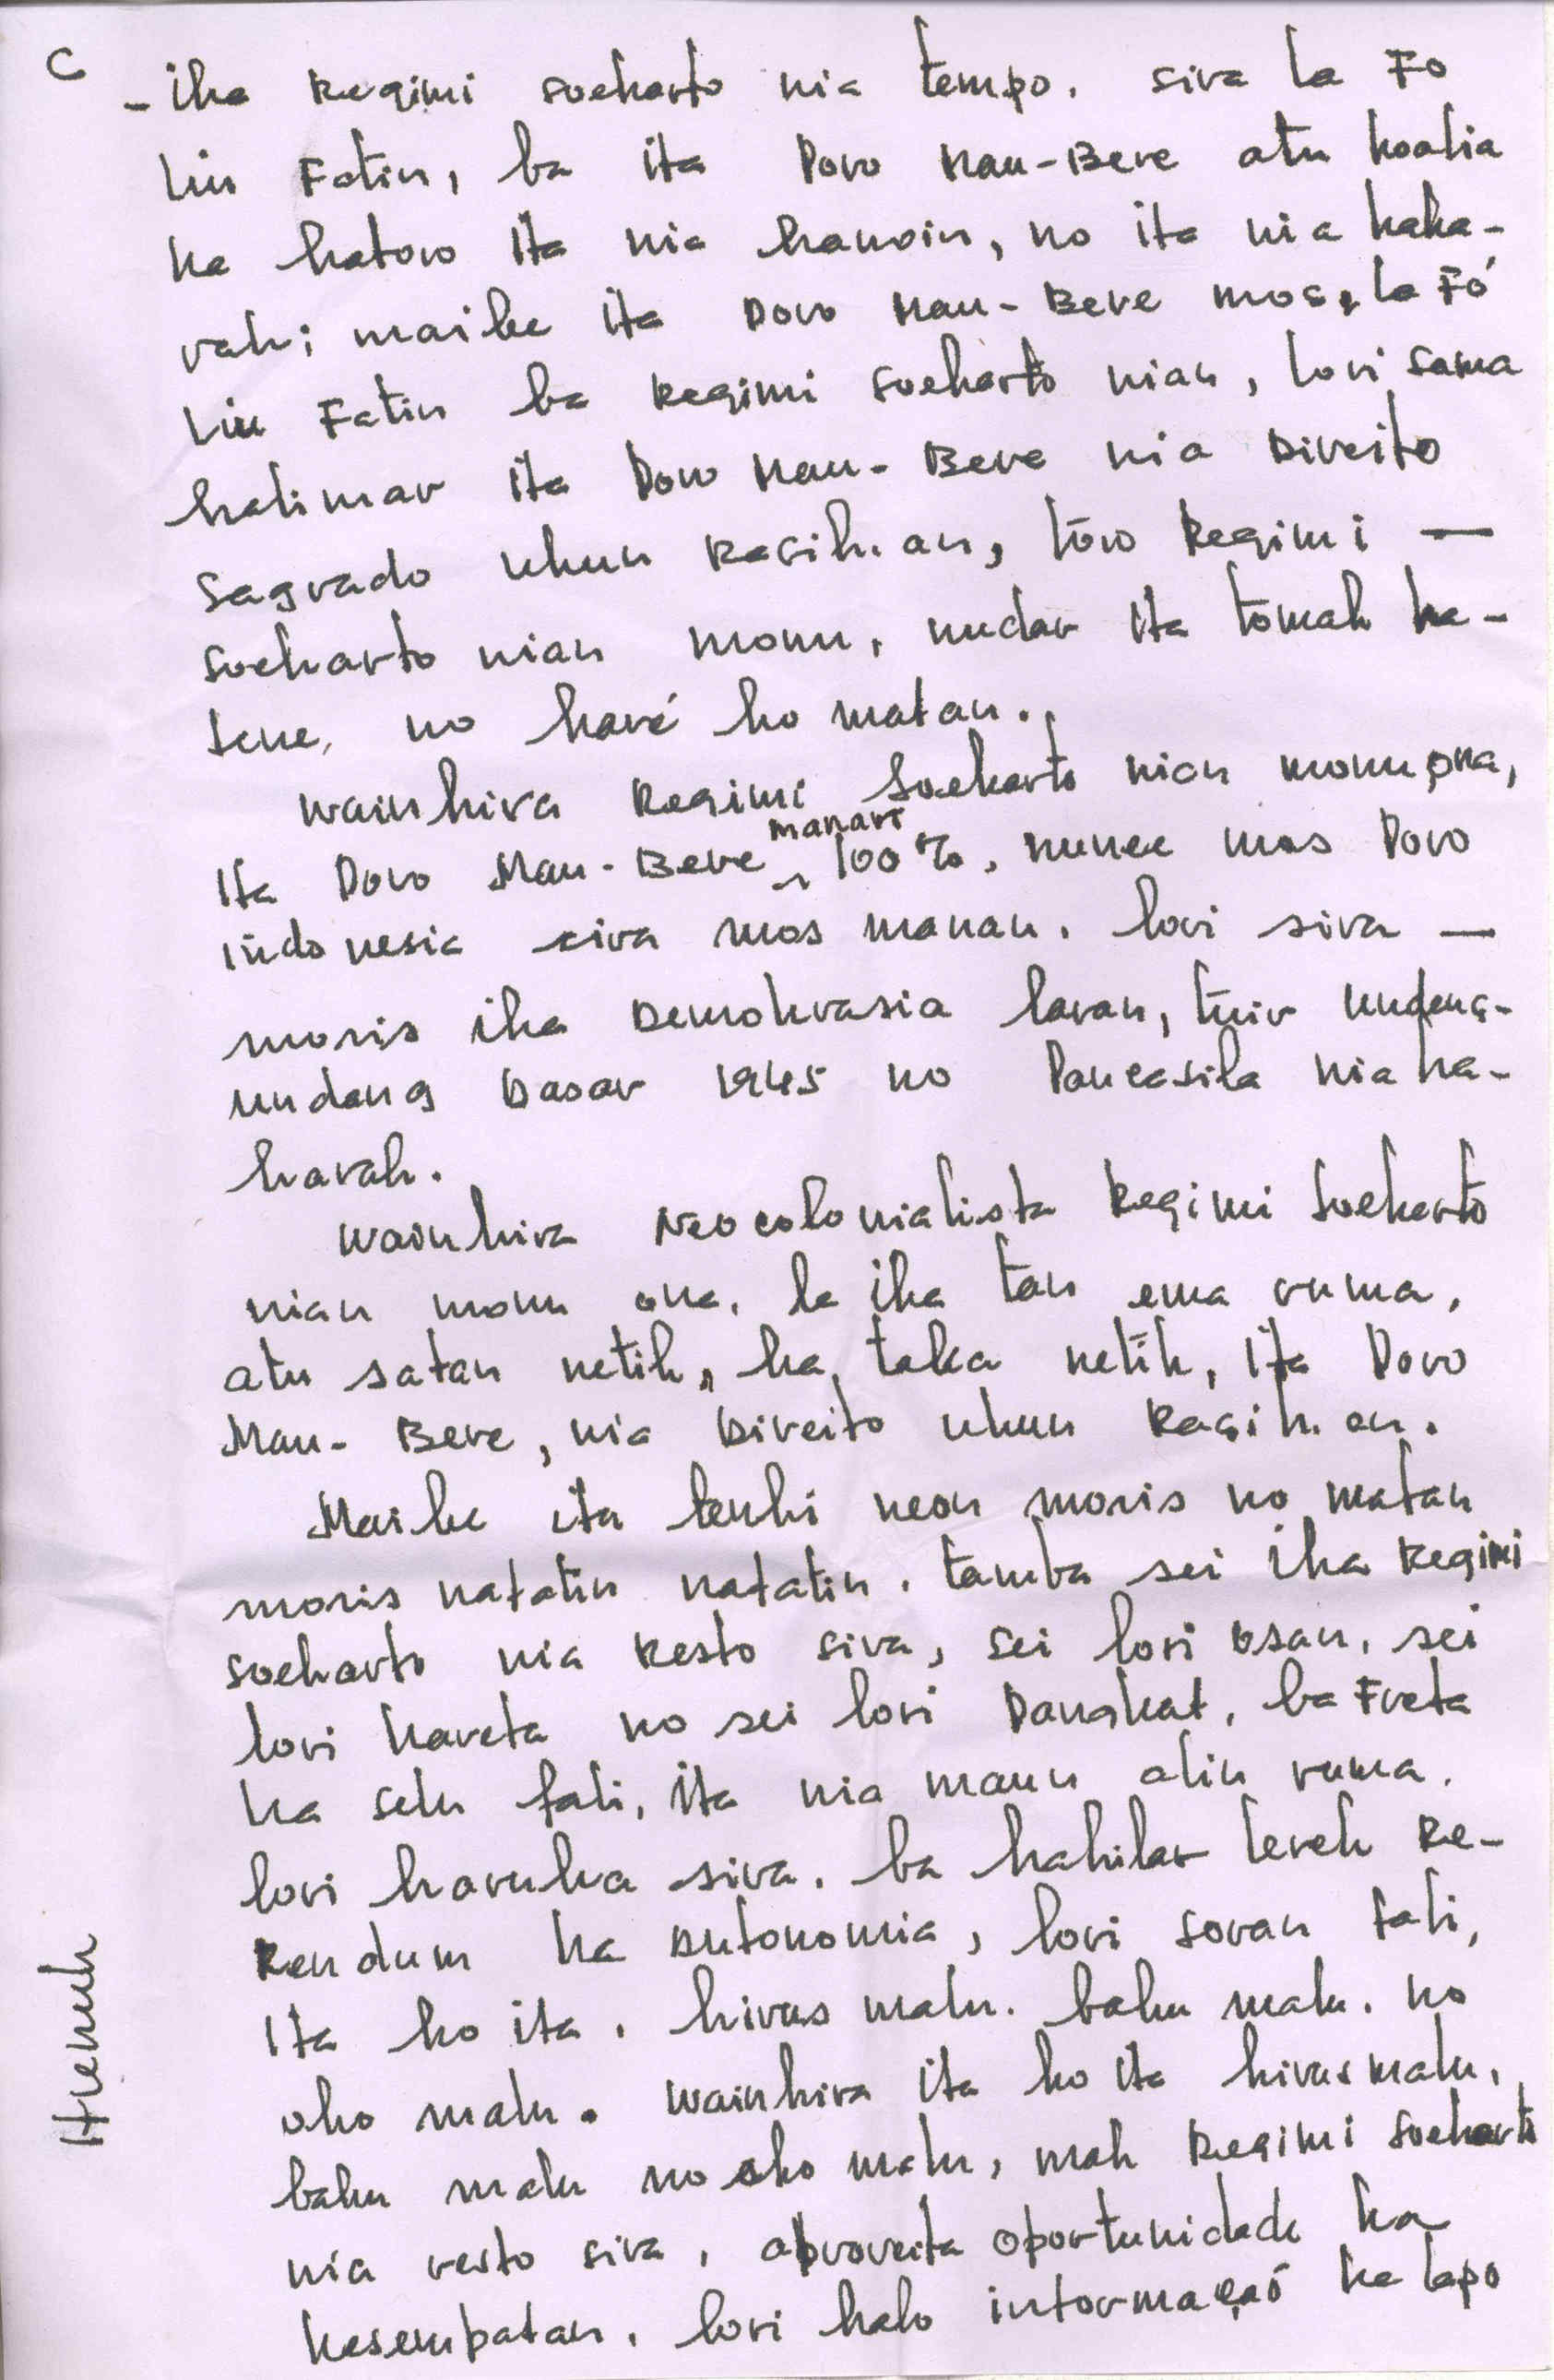 C
- iha Regimi soeharto nia tempo. sira la Fo
liu Fatin, ba ita Povo Mau-Bere atu koalia
ka hatoro ita nia hanoin, no ita nia haka-
rah; maibe ita Povo Mau-Bere mos, la Fó
liu Fatin ba Regimi soeharto nian, lori sama
halimar ita Povo Mau-Bere nia Direito
sagrado ukun Rasikan, tõro Regimi —
soeharto nian monu, nudar ita tomak ha-
tene, no haré ho matan.
wainhira Regimi Soeharto nian monu ona,
ita Povo Mau-Bere manan 100%, nunee mos Povo
indonesia sira mos manan. lori sira —
moris iha Demokrasia laran, tuir undang-
undang Dasar 1945 no Pancasila nia ha-
karak.
wainhira Neocolonialista Regimi Soeharto
nian monu ona, la iha tan ema ruma,
atu satan netik, ka, taka netik, ita Povo
Mau-Bere, nia Direito ukun Rasik an.
Maibe ita tenki neon moris no matan
moris natatin natatin. tamba sei iha Regimi
soeharto nia Resto sira, sei lori osan, sei
lori kareta no sei lori Pangkat, ba Freta
ka selu fali, ita nia maun alin ruma.
lori haruka sira. ba hakilar lerek Re-
Rendum ka Autonomia, lori soran fali,
ita ho ita. hirus malu. baku malu. no
oho malu. wainhira ita ho ita hirus malu,
baku malu no oho malu, mak Regimi soeharto
nia resto sira, aproveita oportunidade ka
kesempatan. lori halo informação ka lapo
Hienuh